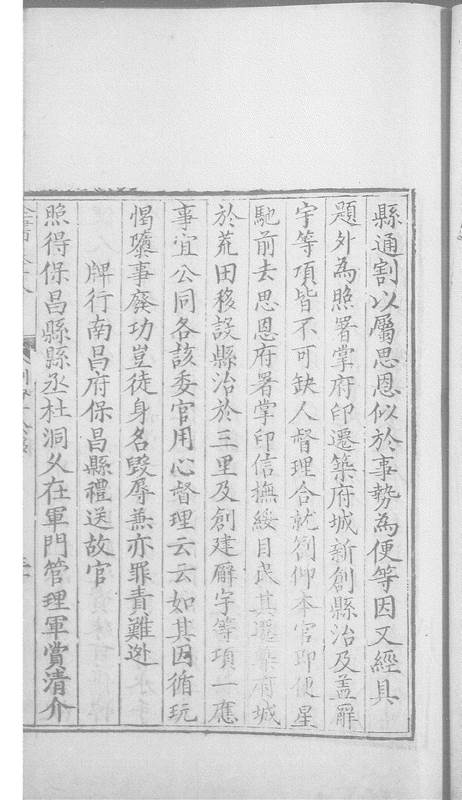 縣通割以屬思恩似於事勢為便等因又經具
題外為照署掌府印遷築府城新創縣治及蓋廨
宇等項皆不可缺人督理合就劄仰本官即便星
馳前去思恩府署掌印信撫綏目民其遷築府城
於荒田移設縣治於三里及創建廨宇等項一應
事宜公同各該委官用心督理云云如其因循玩
愒隳事廢功豈徒身名毀辱兼亦罪責難逊
牌行南昌府保昌縣禮送故官
照得保昌縣縣丞杜洞久在軍門管理軍賞清介